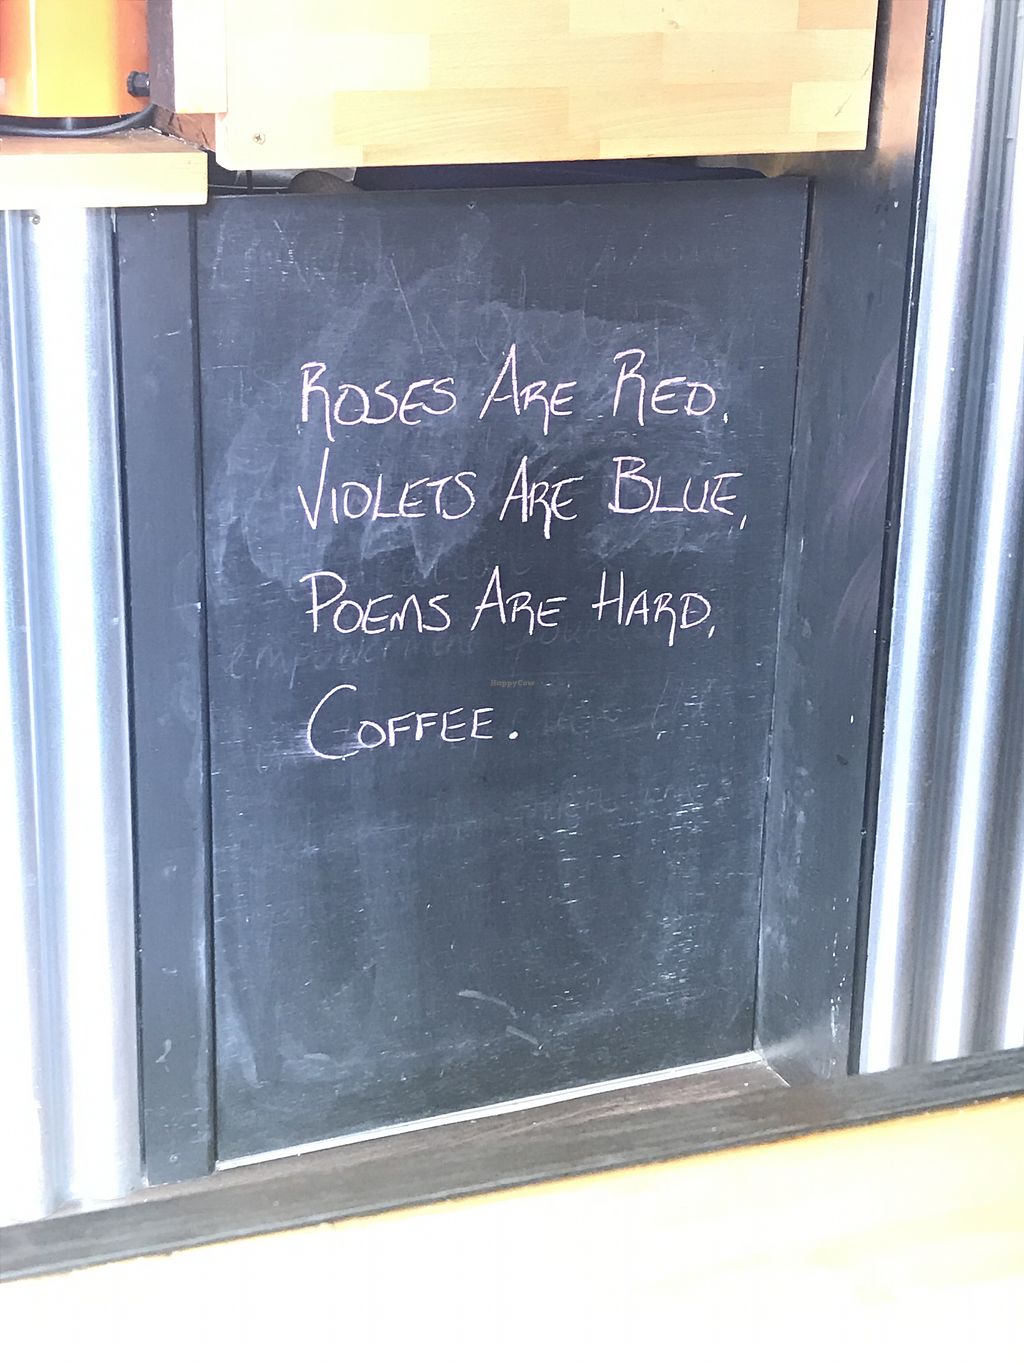 Roses Are Red,
Violets Are Blue,
Poems Are Hard,
empowerment
HappyCow
Coffee.